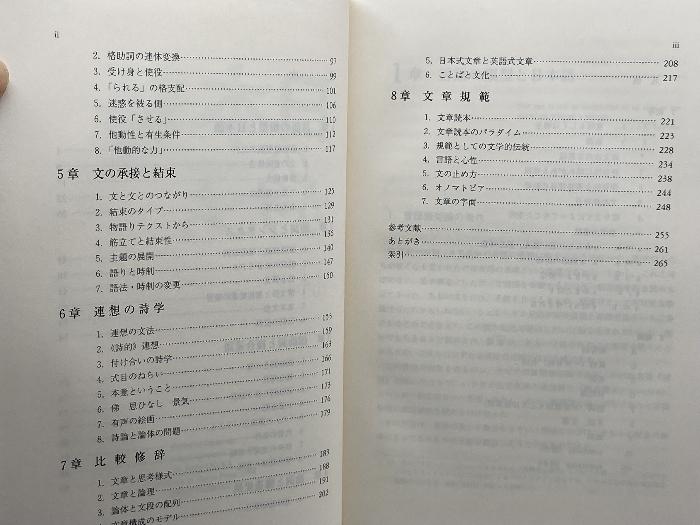 ii
2. 格助詞の連体変換 97
3. 受け身と使役 99
4. 「られる」の格支配 101
5. 迷惑を被る側 106
6. 使役「させる」 110
7. 他動性と有生条件 112
8. 「他動的な力」 117
5章 文の承接と結束
1. 文と文とのつながり 125
2. 結束のタイプ 129
3. 物語りテクストから 131
4. 筋立てと結束性 136
5. 主題の展開 140
6. 語りと時制 147
7. 語法・時制の変更 150
6章 連想の詩学
1. 連想の文法 155
2. 《詩的》連想 159
3. 付け合いの詩学 163
4. 式目のねらい 166
5. 本意ということ 171
6. 俤 思ひなし 景気 173
7. 有声の絵画 176
8. 詩論と論体の問題 179
7章 比較修辞
1. 文章と思考様式 183
2. 文章と論理 188
3. 論体と文段の配列 191
文章構成のモデル 202
iii
5. 日本式文章と英語式文章 208
6. ことばと文化 217
8章 文章規範
1. 文章読本 221
2. 文章読本のパラダイム 223
3. 規範としての文学的伝統 228
4. 言語と心性 234
5. 文の止め方 238
6. オノマトピア 244
7. 文章の字面 248
参考文献 255
あとがき 261
索引 265